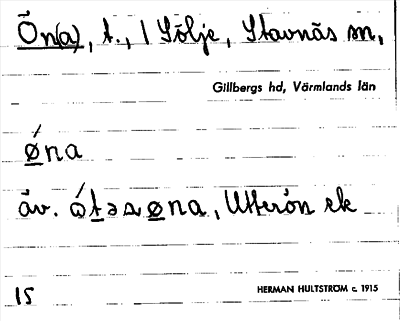 Ön(a), t., i Sölje, Stavnäs sn,
Gillbergs hd, Värmlands län
ǿna
äv. ǻtəɹøna, Utterön ek
15
HERMAN HULTSTRÖM c. 1915